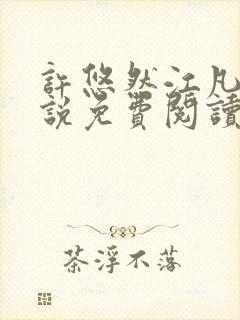 許悠然江凡
說免費閱讀
茶浮不落